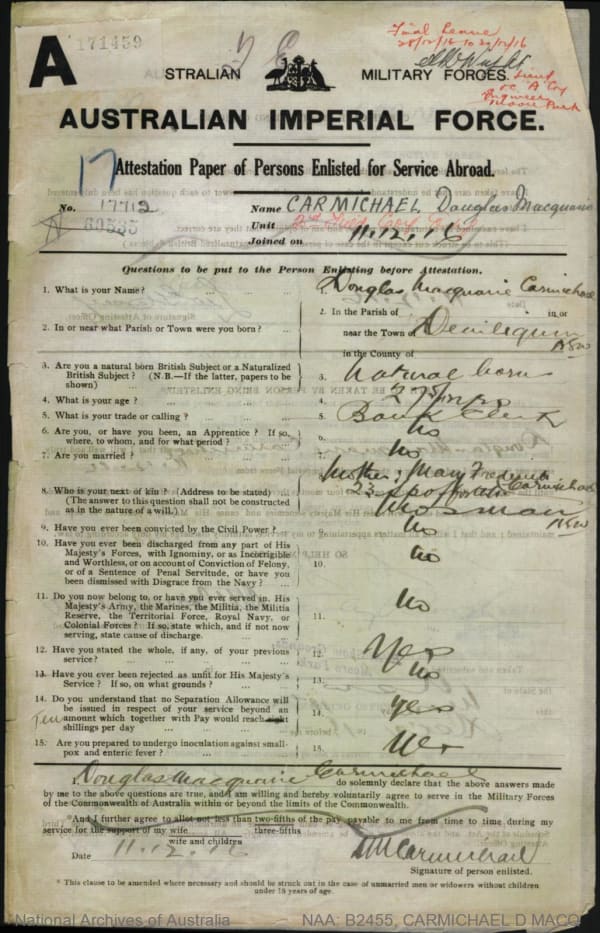 171459
Final Leave
28/12/16 to 30/12/16
A
STRALIAN MILITARY FORCES.
Lieut
OC A Coy
Engineers
Moore Park
AUSTRALIAN IMPERIAL FORCE.
17
Attestation Paper of Persons Enlisted for Service Abroad.
No. 17712 Name CARMICHAEL Douglas Macquarie
Unit
Joined on 11.12.16
Questions to be put to the Person Enlisting before Attestation.
1. What is your Name? ... 1. Douglas Macquarie Carmichael
2. In or near what Parish or Town were you born? ... 2. In the Parish of in, or
near the Town of Deniliquin
in the County of NSW
3. Are you a natural born British Subject or a Naturalized
British Subject? (N.B.—If the latter, papers to be
shown) ... 3. Natural born
4. What is your age? ... 4. 27
5. What is your trade or calling? ... 5. Bank Clerk
6. Are you, or have you been, an Apprentice? If so,
where, to whom, and for what period? ... 6. No
7. Are you married? ... 7. No
8. Who is your next of kin? (Address to be stated)
(The answer to this question shall not be constructed
as in the nature of a will.) 8. Mother: Mary Carmichael
23
Mosman
NSW
9. Have you ever been convicted by the Civil Power? ... 9. No
10. Have you ever been discharged from any part of His
Majesty's Forces, with Ignominy, or as Incorrigible
and Worthless, or on account of Conviction of Felony,
or of a Sentence of Penal Servitude, or have you
been dismissed with Disgrace from the Navy? ... 10. No
11. Do you now belong to, or have you ever served in, His
Majesty's Army, the Marines, the Militia, the Militia
Reserve, the Territorial Force, Royal Navy, or
Colonial Forces? If so, state which, and if not now
serving, state cause of discharge. 11. No
12. Have you stated the whole, if any, of your previous
service? ... 12. Yes
13. Have you ever been rejected as unfit for His Majesty's
Service? If so, on what grounds? 13. No
14. Do you understand that no Separation Allowance will
be issued in respect of your service beyond an
Ten amount which together with Pay would reach eight
shillings per day ... 14. Yes
15. Are you prepared to undergo inoculation against small-
pox and enteric fever? ... 15. Yes
I, Douglas Macquarie Carmichael do solemnly declare that the above answers made
by me to the above questions are true, and I am willing and hereby voluntarily agree to serve in the Military Forces
of the Commonwealth of Australia within or beyond the limits of the Commonwealth.
*And I further agree to allot not less than two-fifths of the pay payable to me from time to time during my
service for the support of my wife three-fifths
wife and children
Date 11.12.16 DM Carmichael
Signature of person enlisted.
* This clause to be amended where necessary and should be struck out in the case of unmarried men or widowers without children
under 18 years of age.
National Archives of Australia NAA: B2455, CARMICHAEL D MACQ